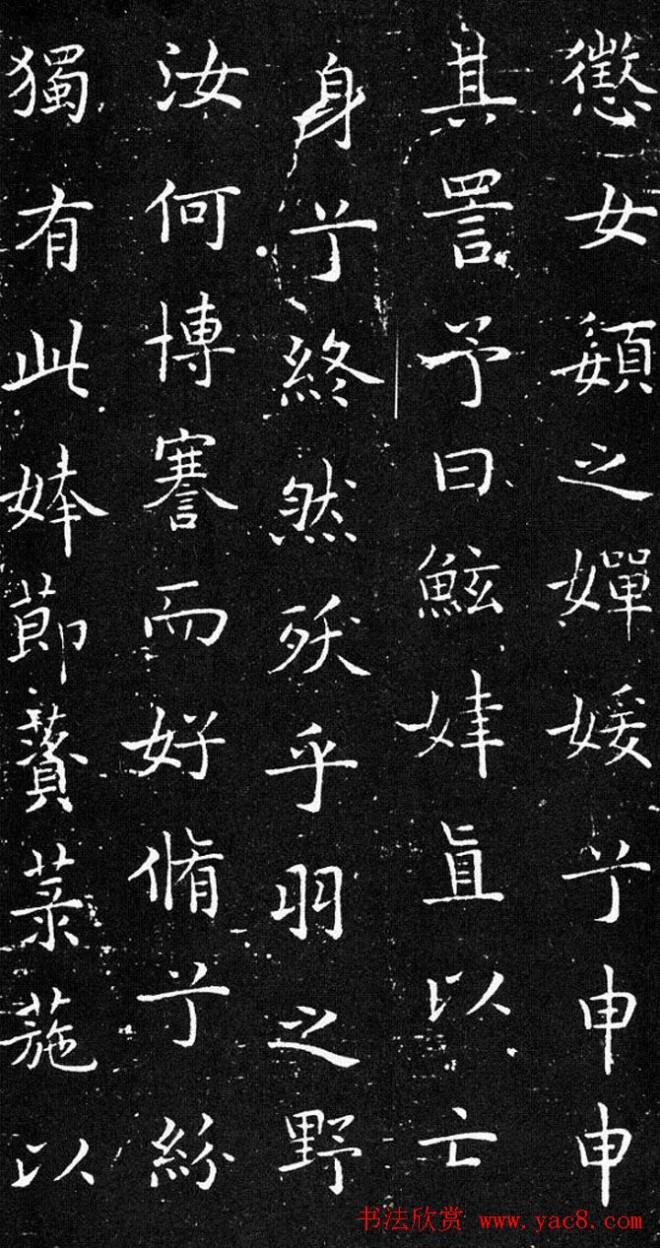 懲女嬃之嬋媛兮申申
其詈予曰鮌婞直以亡
身兮終然殀乎羽之野
汝何博謇而好脩兮紛
獨有此姱節薋菉葹以
书法欣赏 www.yac8.com